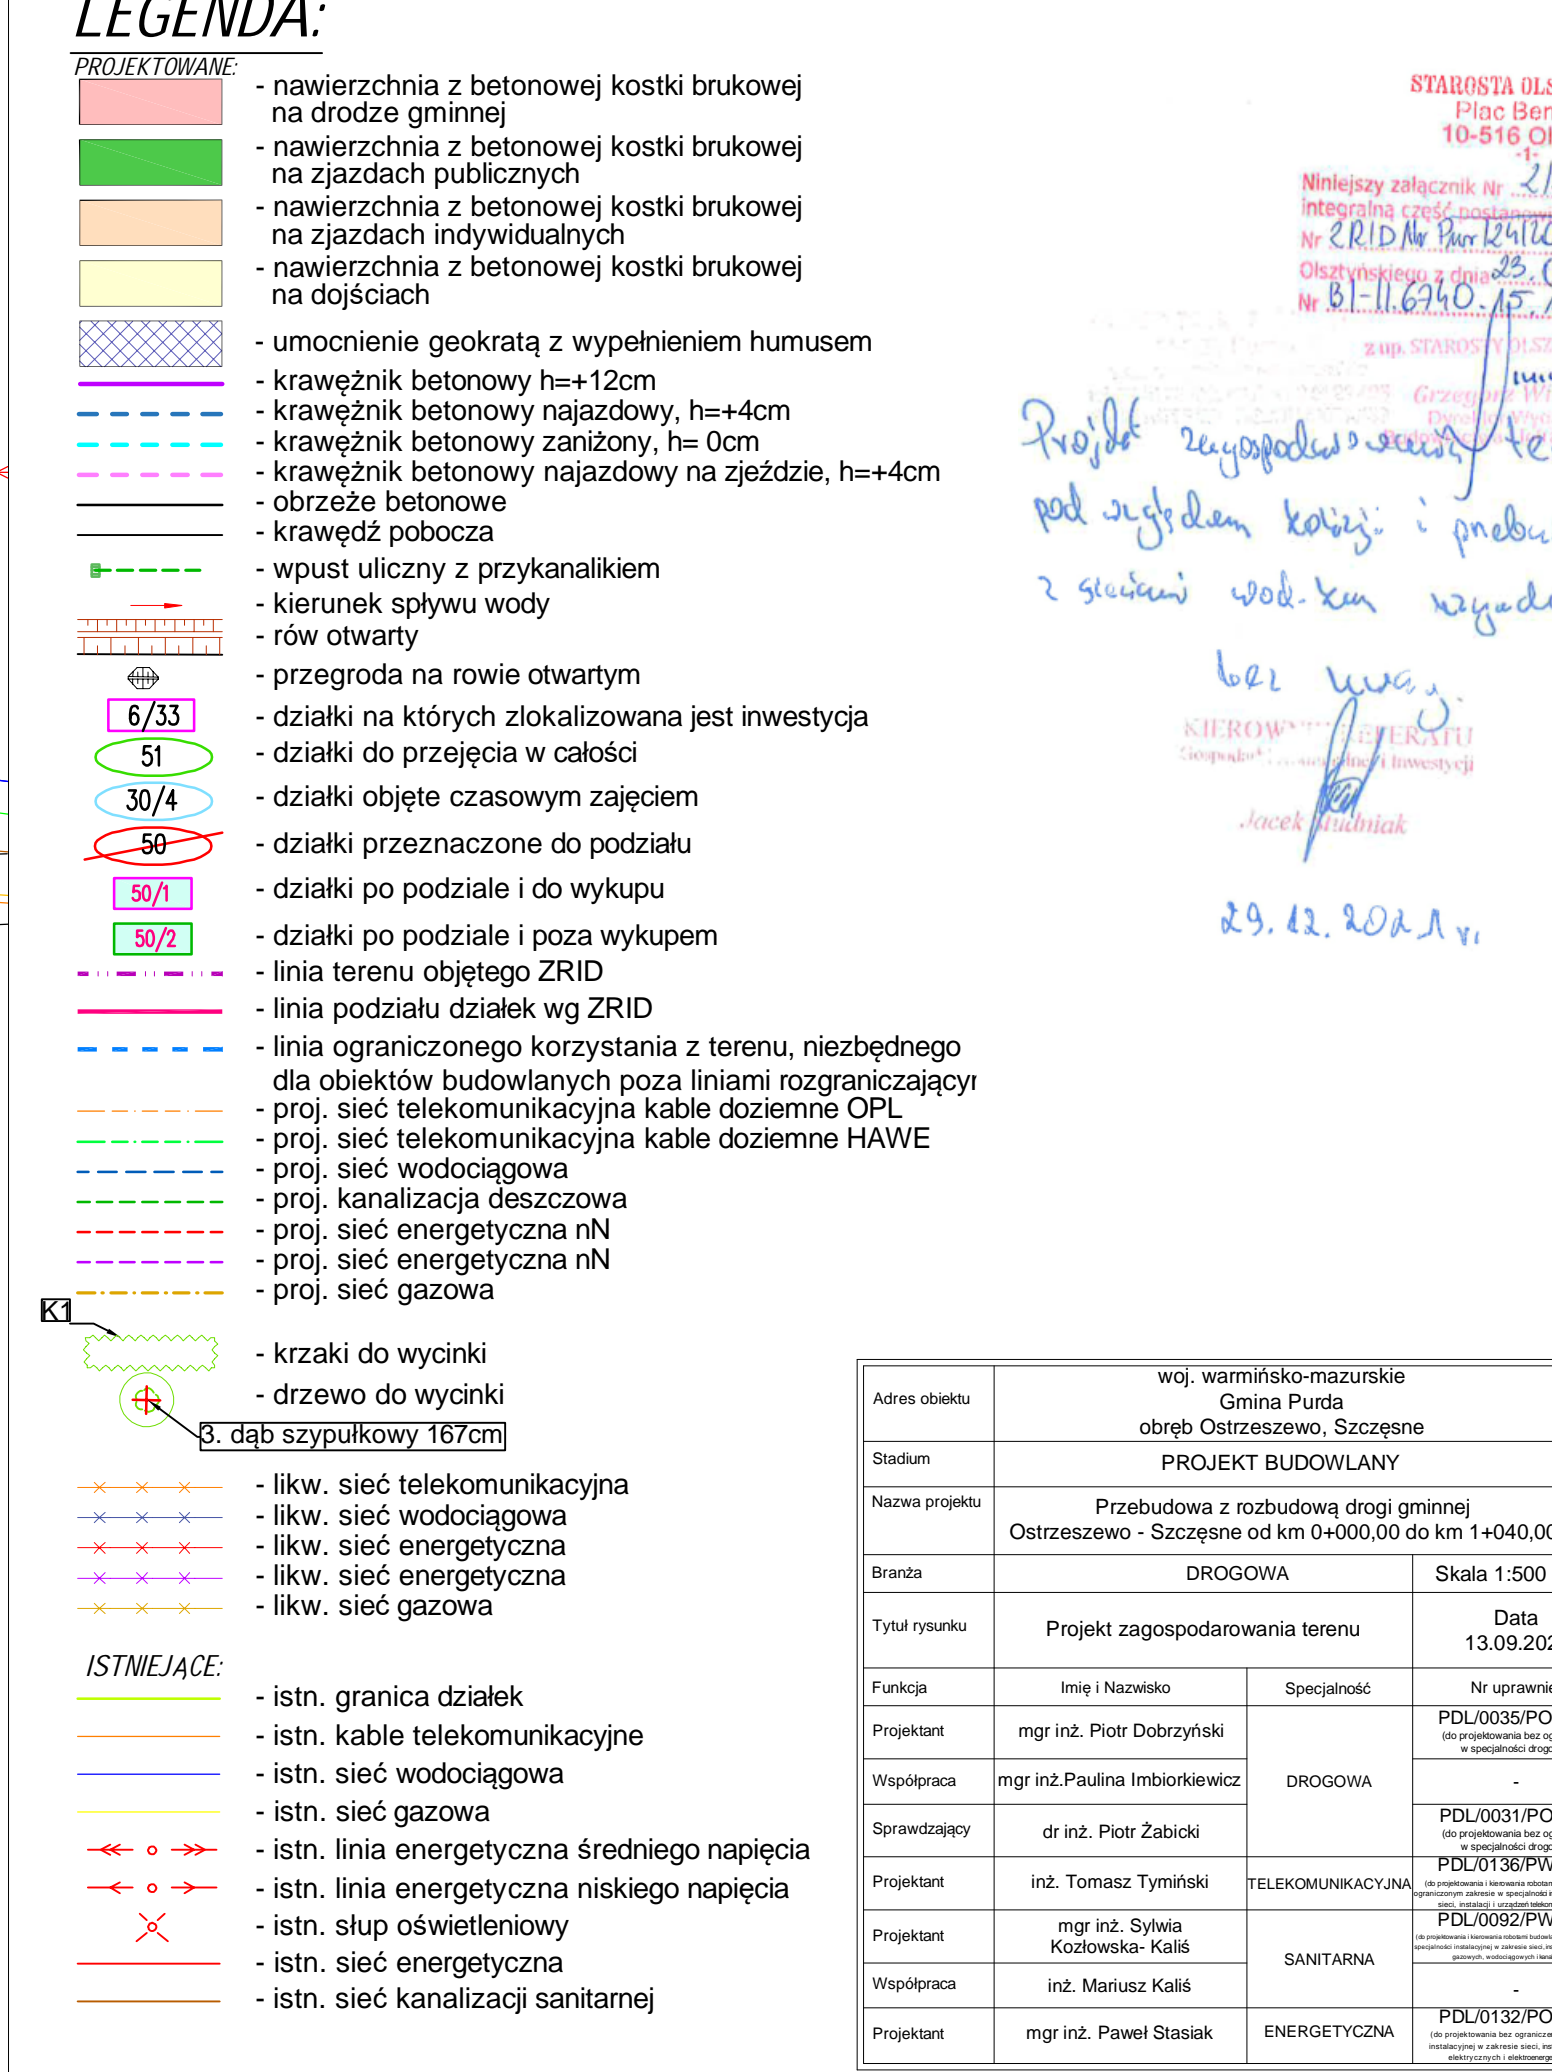 LEGENDA:
PROJEKTOWANE:
- nawierzchnia z betonowej kostki brukowej
na drodze gminnej
- nawierzchnia z betonowej kostki brukowej
na zjazdach publicznych
- nawierzchnia z betonowej kostki brukowej
na zjazdach indywidualnych
- nawierzchnia z betonowej kostki brukowej
na dojściach
- umocnienie geokratą z wypełnieniem humusem
- krawężnik betonowy h=+12cm
- krawężnik betonowy najazdowy, h=+4cm
- krawężnik betonowy zaniżony, h= 0cm
- krawężnik betonowy najazdowy na zjeździe, h=+4cm
- obrzeże betonowe
- krawędź pobocza
- wpust uliczny z przykanalikiem
- kierunek spływu wody
- rów otwarty
- przegroda na rowie otwartym
6/33 - działki na których zlokalizowana jest inwestycja
51 - działki do przejęcia w całości
30/4 - działki objęte czasowym zajęciem
50 - działki przeznaczone do podziału
50/1 - działki po podziale i do wykupu
50/2 - działki po podziale i poza wykupem
- linia terenu objętego ZRID
- linia podziału działek wg ZRID
- linia ograniczonego korzystania z terenu, niezbędnego
dla obiektów budowlanych poza liniami
- proj. sieć telekomunikacyjna kable doziemne OPL
- proj. sieć telekomunikacyjna kable doziemne HAWE
- proj. sieć wodociągowa
- proj. kanalizacja deszczowa
- proj. sieć energetyczna nN
- proj. sieć energetyczna nN
- proj. sieć gazowa
K1
- krzaki do wycinki
- drzewo do wycinki
3. dąb szypułkowy 167cm
- likw. sieć telekomunikacyjna
- likw. sieć wodociągowa
- likw. sieć energetyczna
- likw. sieć energetyczna
- likw. sieć gazowa
ISTNIEJĄCE:
- istn. granica działek
- istn. kable telekomunikacyjne
- istn. sieć wodociągowa
- istn. sieć gazowa
- istn. linia energetyczna średniego napięcia
- istn. linia energetyczna niskiego napięcia
- istn. słup oświetleniowy
- istn. sieć energetyczna
- istn. sieć kanalizacji sanitarnej
STAROSTA
Plac
10-516
-1-
Niniejszy załącznik Nr
integralną część
Nr ZRID Nr
Olsztyńskiego z dnia 23.
Nr BI-II.6740.15.
z up. STAROSTY
Grzegorz
Projekt
pod względem kolizji i
z sieciami wod-kan
bez uwag.
KIEROWNIK REFERATU
i Inwestycji
Jacek Studniak
29.12.2021 r.
Adres obiektu
woj. warmińsko-mazurskie
Gmina Purda
obręb Ostrzeszewo, Szczęsne
Stadium PROJEKT BUDOWLANY
Nazwa projektu
Przebudowa z rozbudową drogi gminnej
Ostrzeszewo - Szczęsne od km 0+000,00 do km 1+040,00
Branża DROGOWA Skala 1:500
Tytuł rysunku Projekt zagospodarowania terenu
Data
13.09.202
Funkcja Imię i Nazwisko Specjalność Nr
Projektant mgr inż. Piotr Dobrzyński DROGOWA PDL/0035/PO
(do projektowania bez
w specjalności
Współpraca mgr inż.Paulina Imbiorkiewicz -
Sprawdzający dr inż. Piotr Żabicki PDL/0031/PO
(do projektowania bez
w specjalności
Projektant inż. Tomasz Tymiński TELEKOMUNIKACYJNA PDL/0136/PW
(do projektowania i kierowania
ograniczonym zakresie w specjalności
sieci, instalacji i urządzeń
Projektant mgr inż. Sylwia
Kozłowska- Kaliś SANITARNA PDL/0092/PW
(do projektowania i kierowania robotami
specjalności instalacyjnej w zakresie sieci,
gazowych, wodociągowych i
Współpraca inż. Mariusz Kaliś -
Projektant mgr inż. Paweł Stasiak ENERGETYCZNA PDL/0132/PO
(do projektowania bez
instalacyjnej w zakresie sieci,
elektrycznych i